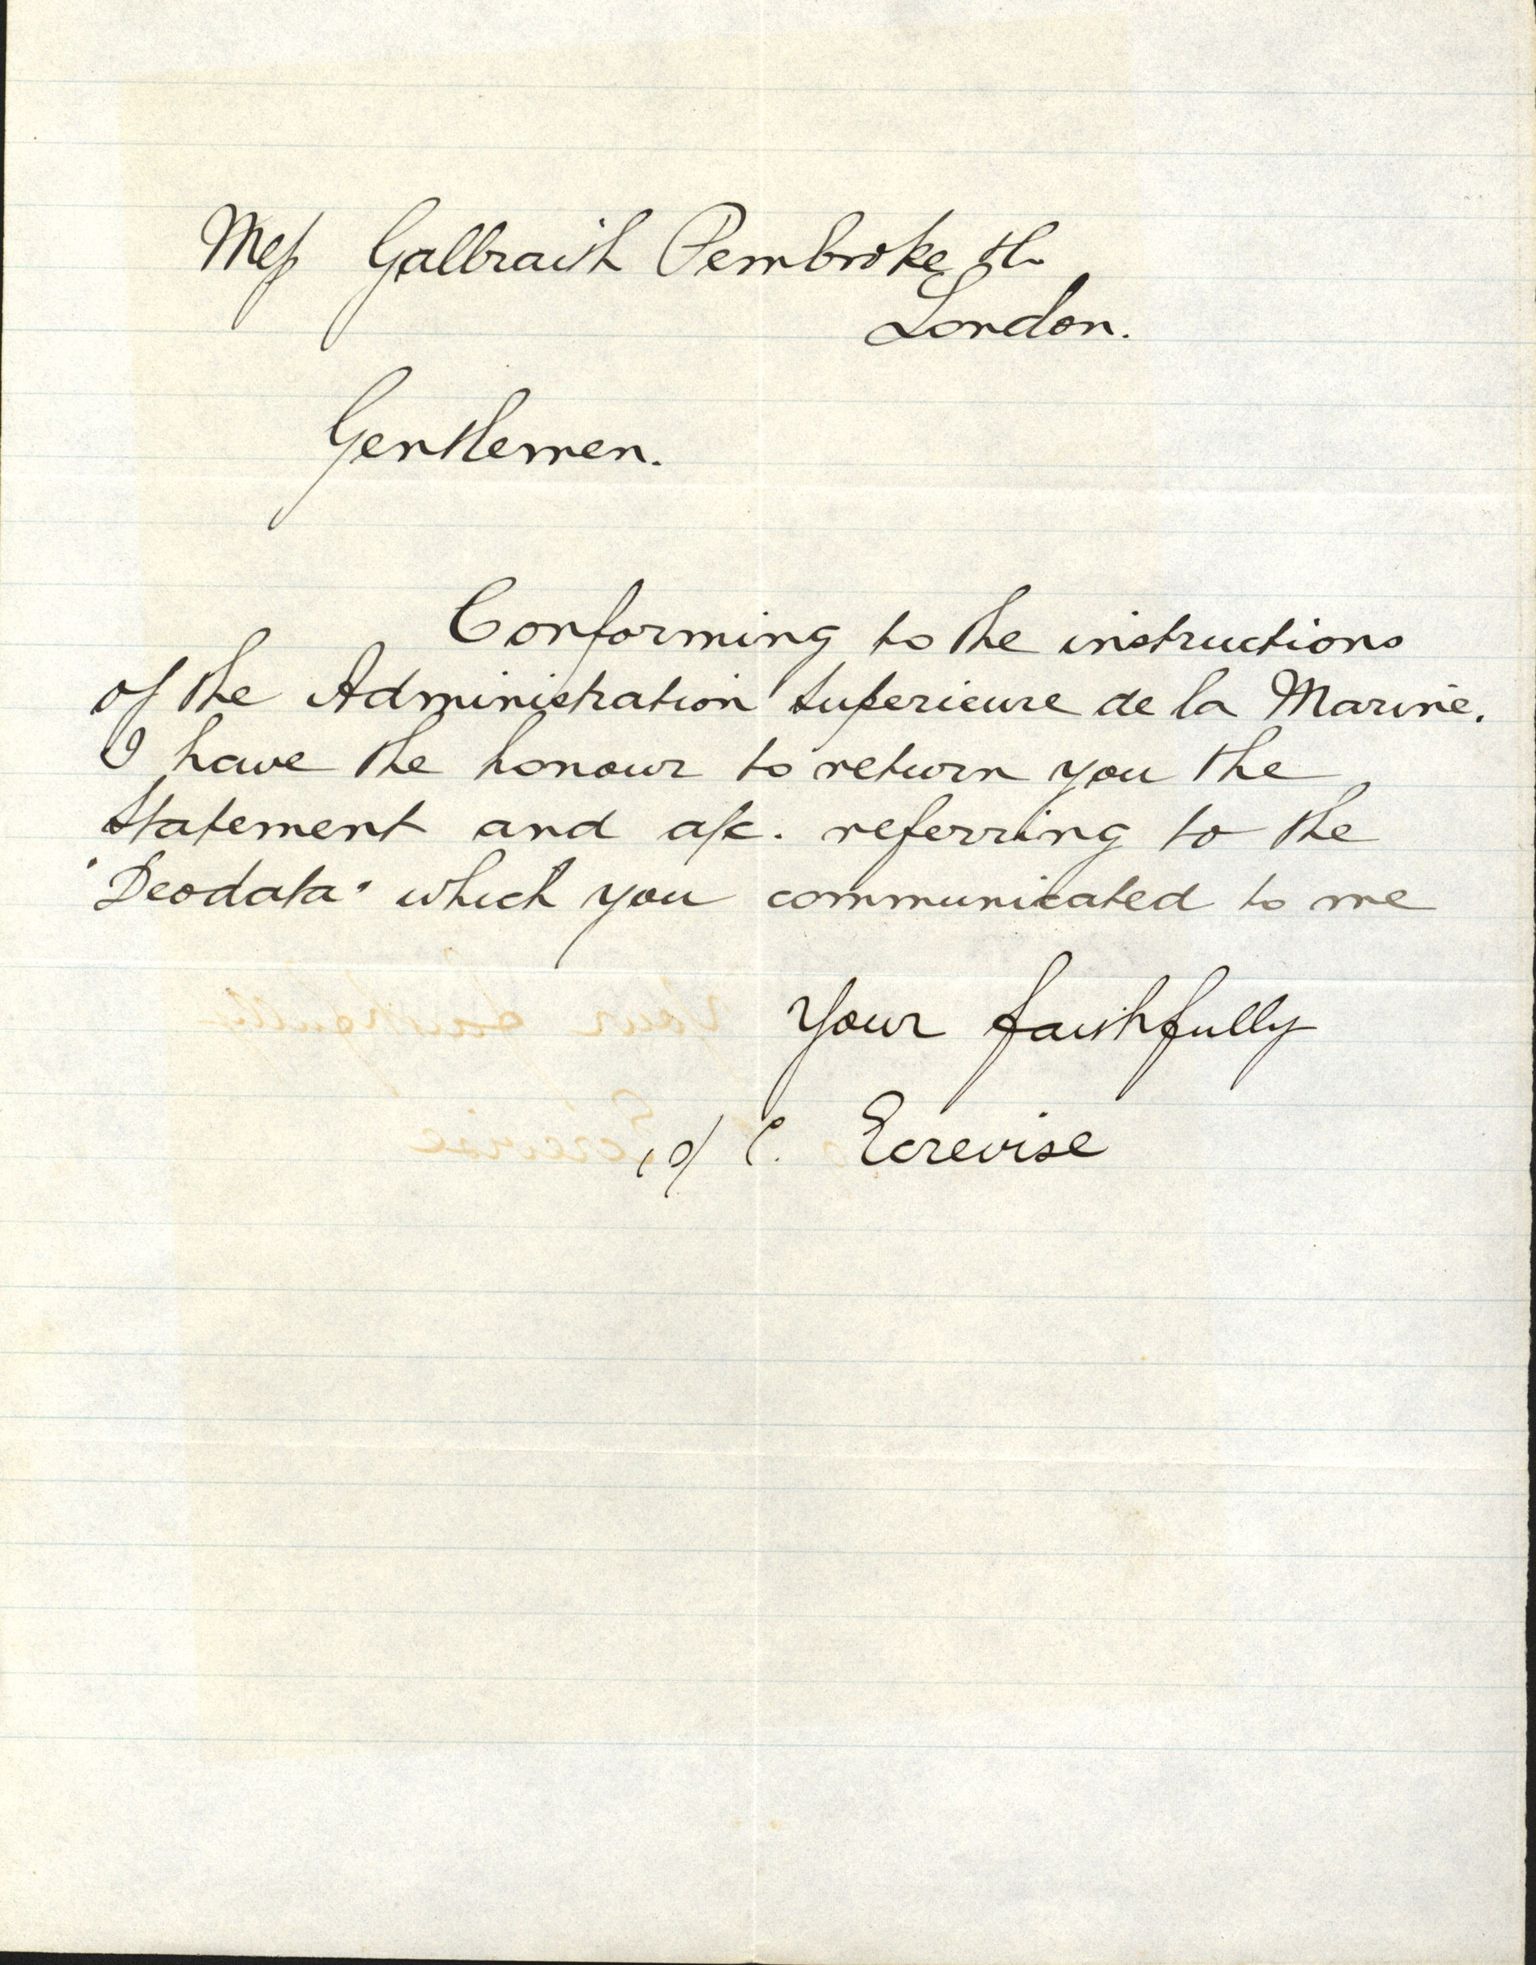 Mess Galbraith Pembroke &Co
London.
Gentlemen.
Conforming to the instructions
of the Administration Superieure de la Marine.
I have the honour to return you the
Statement and a/c. referring to the
"Deodata" which you communicated to me
Your faithfully
C. Ecrevise